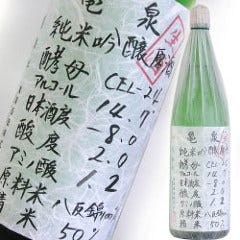 亀泉
純米吟醸原酒
酵母 CEL-24
アルコール 14.7
日本酒度 -8.0
酸度 2.0
アミノ酸 1.2
原料米 八反錦
50%
亀泉
純米吟醸
酵母 CEL-24
アルコール 14.7
日本酒度 -8.0
酸度 2.0
アミノ酸 1.2
原料米 八反錦
精米 50%